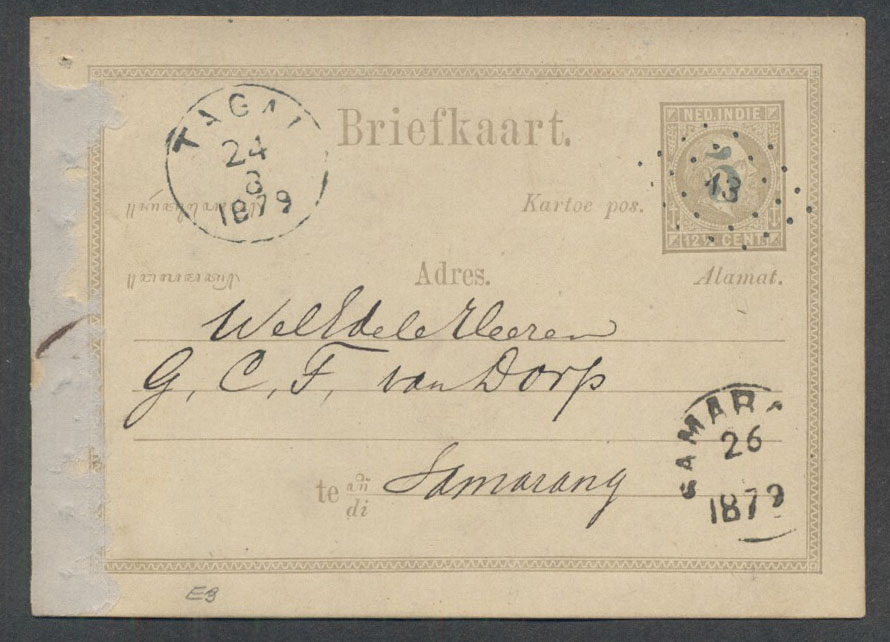 TAGAL
24
8
1879
Briefkaart.
NED. INDIE
5
13
12½ CENT.
Kartoe pos.
Adres.
Alamat.
WelEdele Heeren
G, C, F, van Dorp
te an̄ di Samarang
SAMARA
26
1879
EB